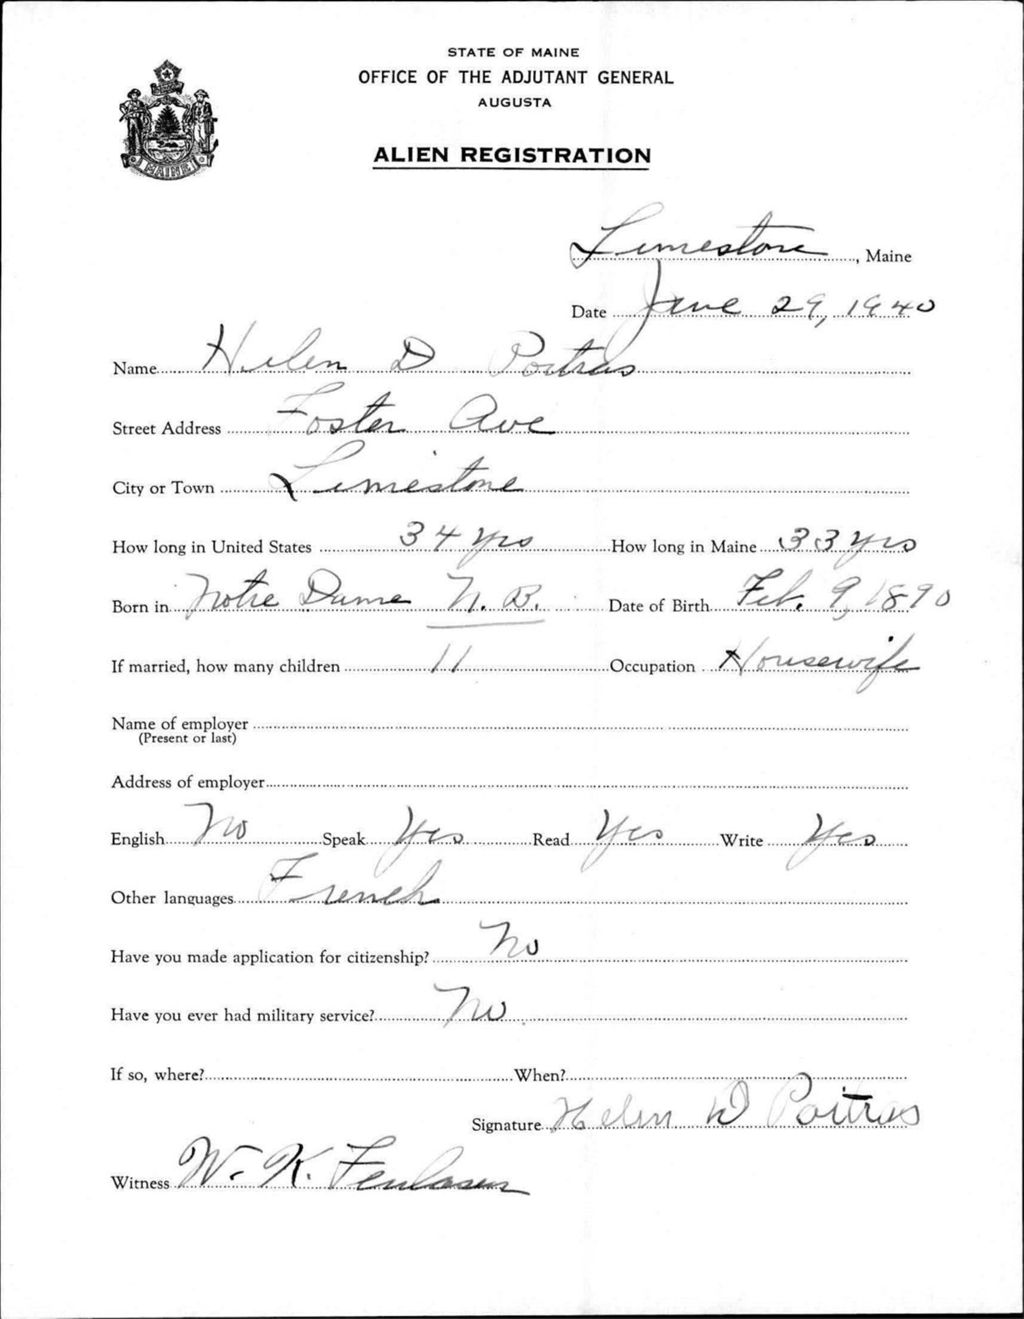 STATE OF MAINE
OFFICE OF THE ADJUTANT GENERAL
AUGUSTA
ALIEN REGISTRATION
MAINE
Limestone, Maine
Date June 29, 1940
Name Helen D Poitras
Street Address Foster Ave
City or Town Limestone
How long in United States 34 yrs How long in Maine 33 yrs
Born in Notre Dame N. B. Date of Birth Feb. 9, 1890
If married, how many children 11 Occupation Housewife
Name of employer
(Present or last)
Address of employer
English No Speak Yes Read Yes Write Yes
Other languages French
Have you made application for citizenship? No
Have you ever had military service? No
If so, where? When?
Signature Helen D Poitras
Witness W. K.